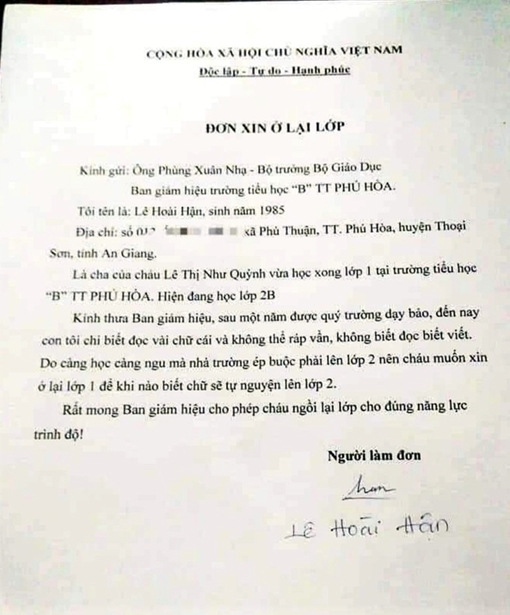 CỘNG HÒA XÃ HỘI CHỦ NGHĨA VIỆT NAM
Độc lập - Tự do - Hạnh phúc
ĐƠN XIN Ở LẠI LỚP
Kính gửi: Ông Phùng Xuân Nhạ - Bộ trưởng Bộ Giáo Dục
Ban giám hiệu trường tiểu học “B” TT PHÚ HÒA.
Tôi tên là: Lê Hoài Hận, sinh năm 1985
Địa chỉ: số xã Phú Thuận, TT. Phú Hòa, huyện Thoại
Sơn, tỉnh An Giang.
Là cha của cháu Lê Thị Như Quỳnh vừa học xong lớp 1 tại trường tiểu học
“B” TT PHÚ HÒA. Hiện đang học lớp 2B
Kính thưa Ban giám hiệu, sau một năm được quý trường dạy bảo, đến nay
con tôi chỉ biết đọc vài chữ cái và không thể ráp vần, không biết đọc biết viết.
Do càng học càng ngu mà nhà trường ép buộc phải lên lớp 2 nên cháu muốn xin
ở lại lớp 1 để khi nào biết chữ sẽ tự nguyện lên lớp 2.
Rất mong Ban giám hiệu cho phép cháu ngồi lại lớp cho đúng năng lực
trình độ!
Người làm đơn
LÊ HOÀI HẬN